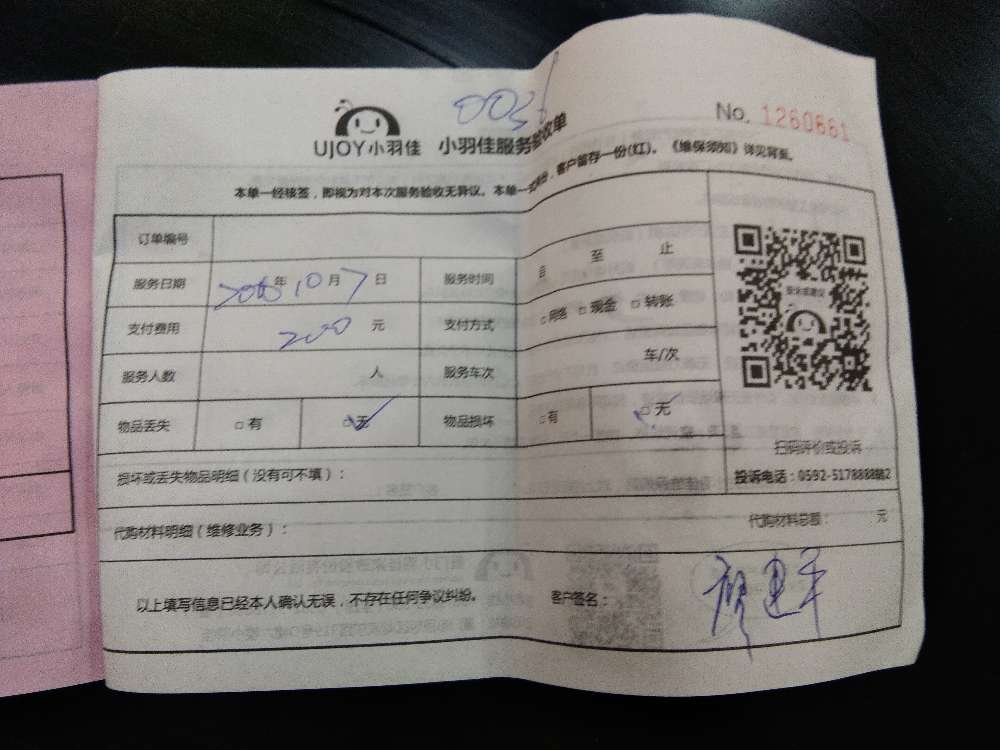 No. 1260661
UJOY小羽佳 小羽佳服务验收单
本单一经接签，即视为对本次服务验收无异议。本单一式两份，客户留存一份(红)。《维保须知》详见背至。
订单编号
服务日期 年10月7日 服务时间 自 至 止
支付费用 200 元 支付方式 □网络 □现金 □转账
服务人数 人 服务车次 车/次
物品丢失 □有 □无 物品损坏 □有 □无
投诉或建议
扫码评价或投诉
损坏或丢失物品明细（没有可不填）：
投诉电话：0592-5178888转2
代购材料明细（维修业务）： 代购材料总额： 元
以上填写信息已经本人确认无误，不存在任何争议纠纷。 客户签名：